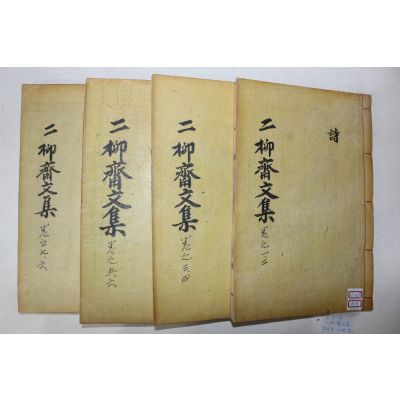 詩
二柳齋文集
卷之一二
二柳齋文集
卷之三四
二柳齋文集
卷之五六
二柳齋文集
卷之七八